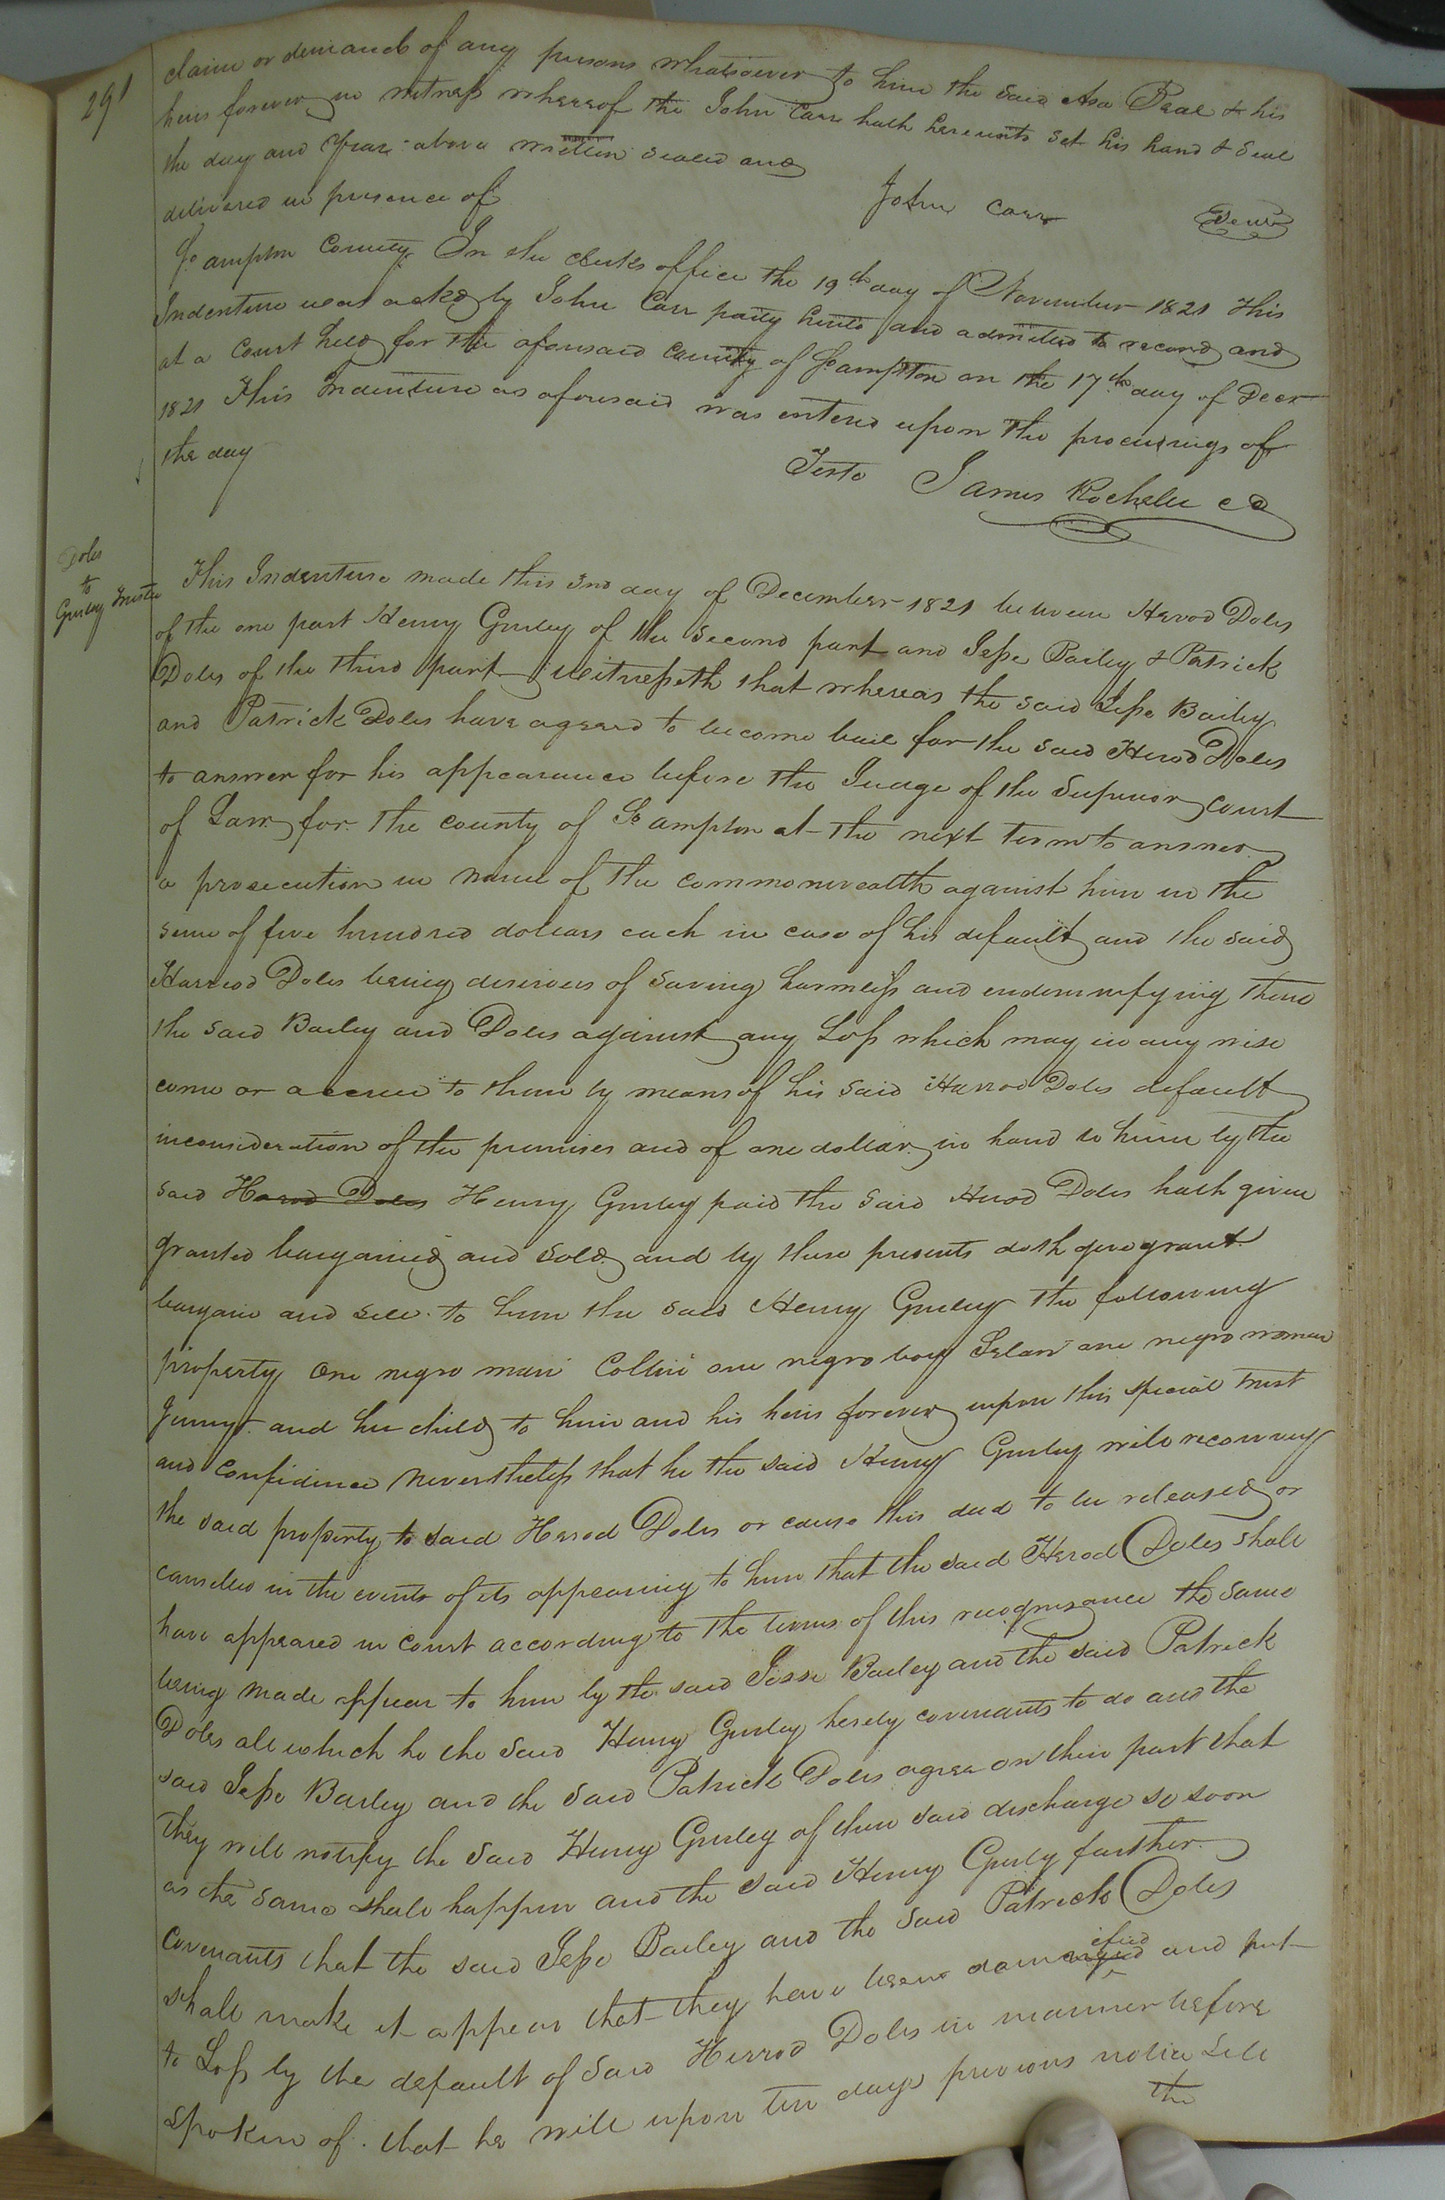 291
claim or demand of any persons whatsoever to him the said Asa Beal & his
heirs forever in witness whereof the John Carr hath hereunto set his hand & Seal
the day and year above written sealed and
delivered in presence of
John Carr Seal
So ampton County In the clerks office the 19th day of November 1821 This
Indenture was acked by John Carr party hereto and admitted to record and
at a Court held for the aforesaid County of So ampton on the 17th day of Decr
1821 This Indenture as aforesaid was entered upon the proceedings of
the day
Teste James Rochelle CC
Doles
to
Gurley Trustee
This Indenture made this 3nd day of December 1821 between Herrod Doles
of the one part Henry Gurley of the Second part and Jesse Bailey & Patrick
Doles of the third part Witnesseth that whereas the said Jesse Bailey
and Patrick Doles have agreed to become bail for the said Herod Doles
to answer for his appearance before the Judge of the Superior court
of Law for the county of So ampton at the next term to answer
a prosecution in name of the commonwealth against him in the
sum of five hundred dollars each in case of his default and the said
Harrod Doles being desirous of Saving harmless and endemnifying them
the said Bailey and Doles against any Loss which may in any wise
come or accrue to them by means of his said Harrod Doles default
inconsideration of the premises and of one dollar in hand to him by the
said Harod Doles Henry Gurley paid the said Herod Doles hath given
granted bargained and sold and by these presents doth give grant
bargain and sell to him the said Henry Gurley the following
property One negro man Collin one negro boy one negro woman
Jenny and her child to him and his heirs forever upon this special trust
and confidence nevertheless that he the said Henry Gurley will reconvey
the said property to said Herod Doles or cause this deed to be released or
cancelled in the event of its appearing to him that the said Herod Doles shall
have appeared in court according to the terms of this recognisance the same
being made appear to him by the said Jesse Bailey and the said Patrick
Doles all which he the said Henry Gurley hereby covenants to do and the
said Jesse Bailey and the said Patrick Doles agree on their part that
they will notify the said Henry Gurley of their said discharge so soon
as the same shall happen and the said Henry Gurley further
covenants that the said Jesse Bailey and the said Patrick Doles
shall make it appear that they have been damnified and put
to Loss by the default of said Herrod Doles in manner before
spoken of that he will upon ten days previous notice Sell
the